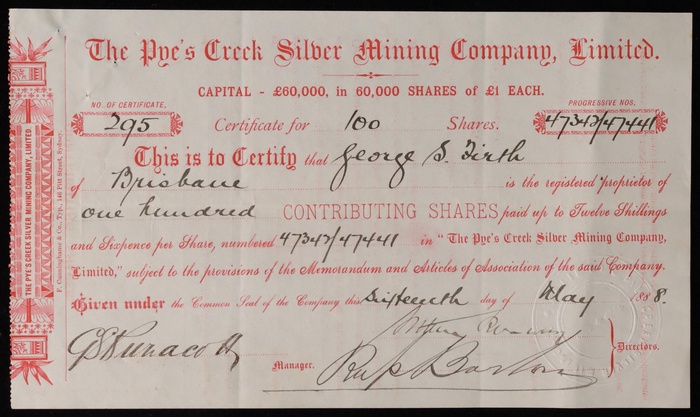 The Pye's Creek Silver Mining Company, Limited.
CAPITAL - £60,000, in 60,000 SHARES of £1 EACH.
NO. OF CERTIFICATE, PROGRESSIVE NOS.
295 Certificate for 100 Shares. 47342/47441
This is to Certify that George S. Firth
of Brisbane is the registered proprietor of
one hundred CONTRIBUTING SHARES paid up to Twelve Shillings
and Sixpence per Share, numbered 47342/47441 in "The Pye's Creek Silver Mining Company,
Limited," subject to the provisions of the Memorandum and Articles of Association of the said Company.
Given under the Common Seal of the Company this Sixteenth day of May 1888.
Directors.
Manager.
THE PYE'S CREEK SILVER MINING COMPANY, LIMITED.
F. Cunninghame & Co., Typ., 146 Pitt Street, Sydney.